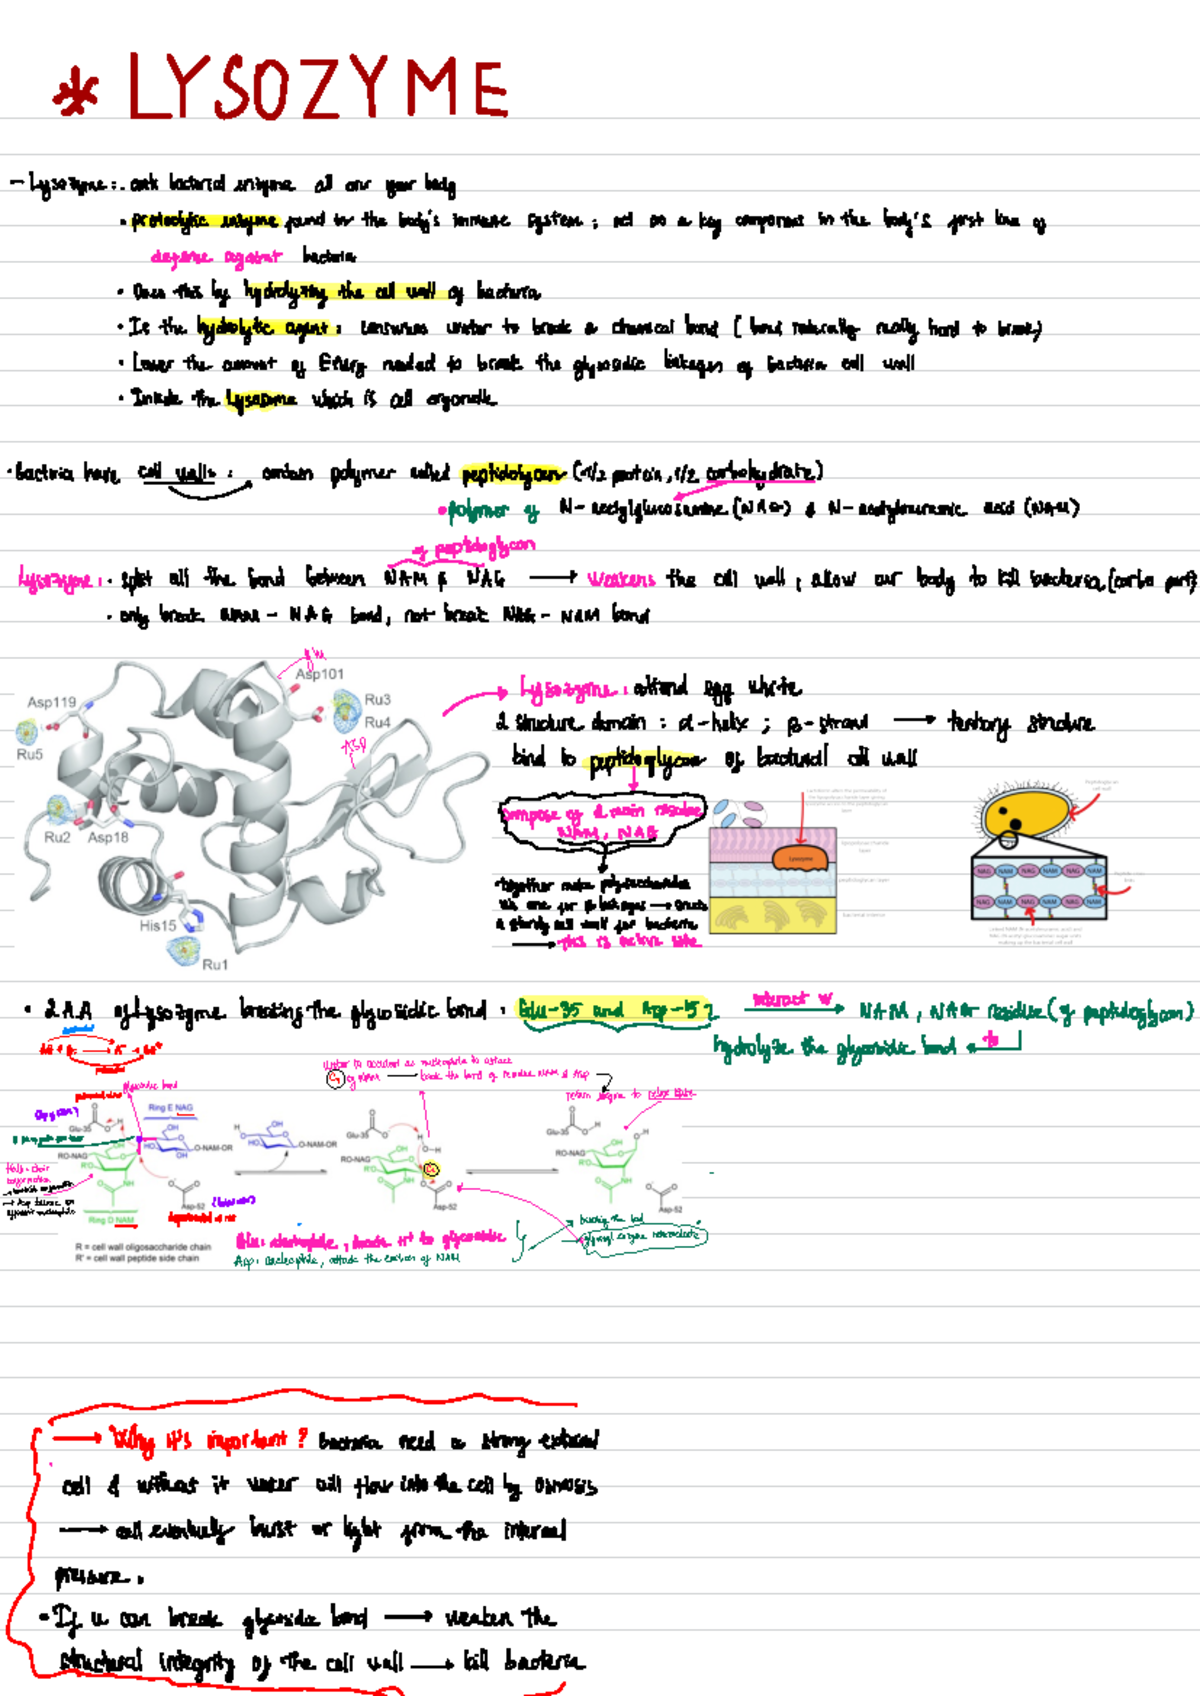 * LYSOZYME
- Lysozyme: anti bacterial enzyme all over your body
• proteolytic enzyme found in the body's immune system ; act as a key component in the body's first line of
defense against bacteria
• Does this by hydrolyzing the cell wall of bacteria
• Is the hydrolytic agent : consumes water to break a chemical bond ( bond naturally really hard to break)
• Lower the amount of Energy needed to break the glycosidic linkages of bacteria cell wall
• Inside the Lysosome which is cell organelle
• Bacteria have cell walls : contain polymer called peptidoglycan (1/2 protein, 1/2 carbohydrate)
• polymer of N-acetylglucosamine (NAG) & N-acetylmuramic acid (NAM)
of peptidoglycan
Lysozyme: • split all the bond between NAM & NAG → weakens the cell wall , allow our body to kill bacteria (carbo part)
• only break NAM - NAG bond, not break NAG - NAM bond
glu
Asp101
Asp119
Ru3
Ru4
Ru5
Asp
Ru2
Asp18
His15
Ru1
→ Lysozyme : around egg white
2 structure domain : α-helix ; β-strand → tertiary structure
bind to peptidoglycan of bacterial cell wall
compose of 2 main residue
NAM, NAG
Lysozyme
bacterial interior
Peptidoglycan
cell wall
NAG NAM NAG NAM NAG NAM
NAG NAM NAG NAM NAG NAM
Linked NAM (N-acetylmuramic acid) and
NAG (N-acetyl glucosamine) sugar units
making up the bacterial cell wall
• together make polysaccharides
→ this is active site
• 2 A.A of Lysozyme breaking the glycosidic bond : Glu-35 and Asp-52 interact w → NAM, NAG residue (of peptidoglycan)
hydrolyze the glycosidic bond ← to
glycosidic bond
Ring E NAG
Glu-35
O-NAM-OR
RO-NAG
Asp-52
Ring D NAM
R = cell wall oligosaccharide chain
R' = cell wall peptide side chain
O-NAM-OR
Glu-35
RO-NAG
C1
Asp-52
Glu-35
RO-NAG
Asp-52
Glu: electrophile, donate H+ to glycosidic
Asp: nucleophile, attack the carbon of NAM
breaking the bond
glycosyl enzyme intermediate
→ Why it's important ? bacteria need a strong external
cell & without it water will flow into the cell by osmosis
→ cell eventually burst or light from the internal
pressure .
• If u can break glycosidic bond → weaken the
structural integrity of the cell wall → kill bacteria